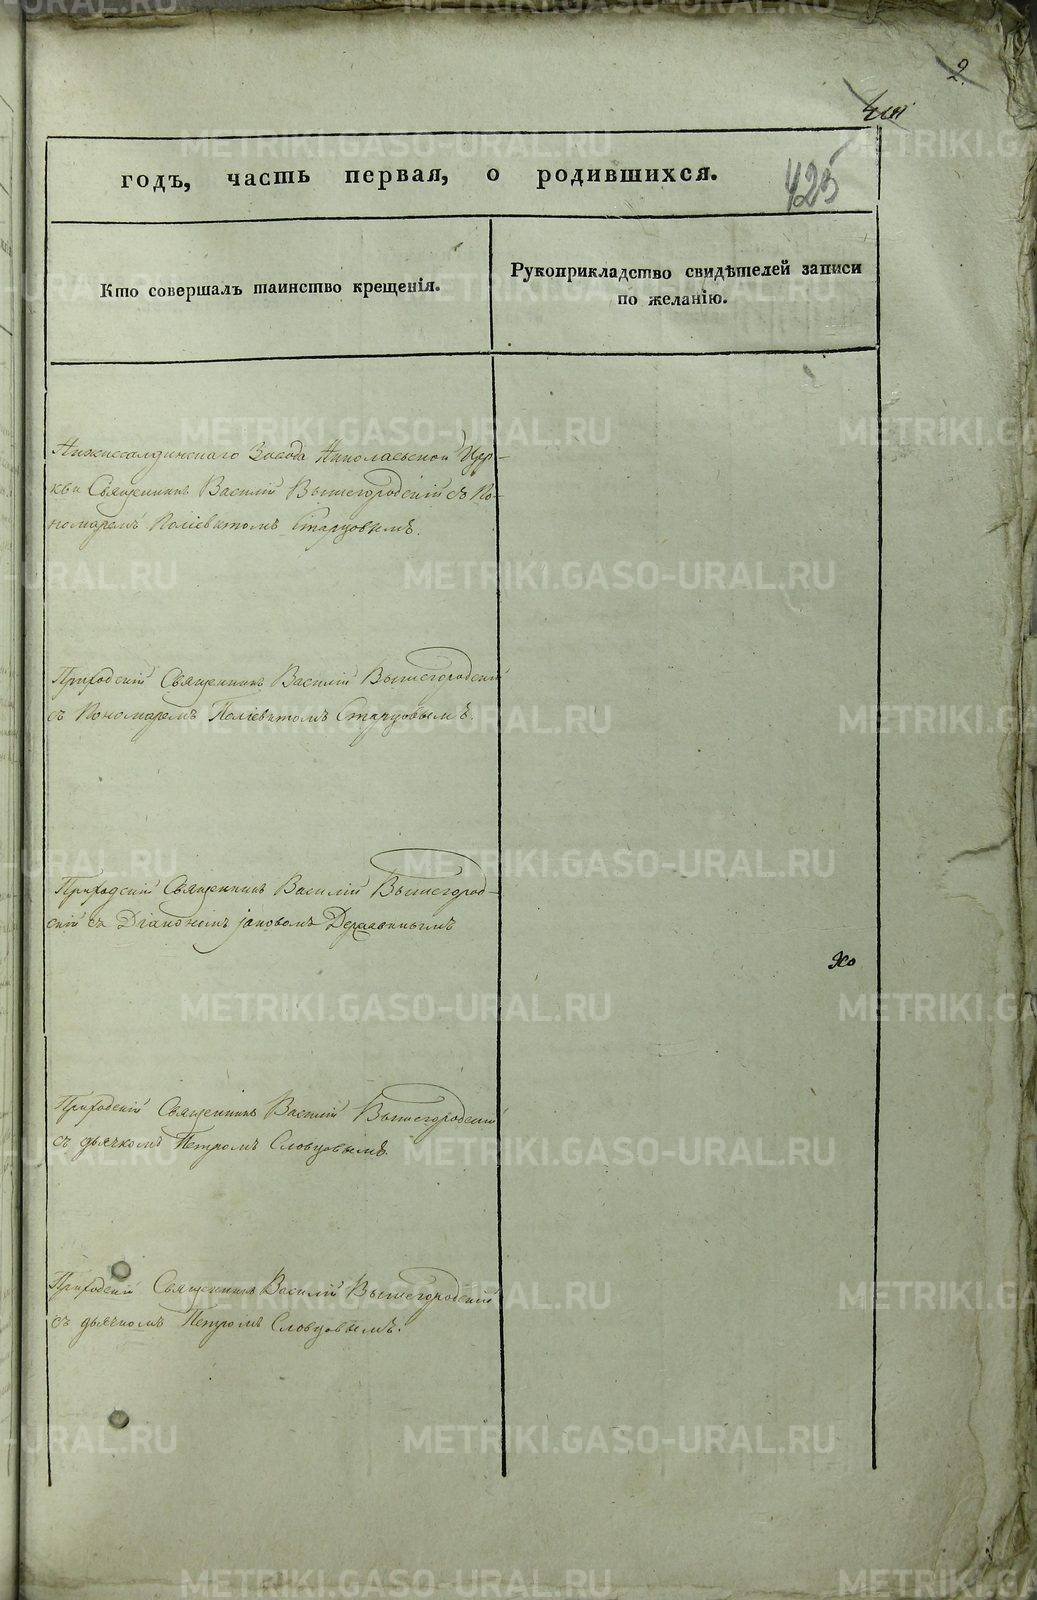 2.
425
годъ, часть первая, о родившихся.
Кто совершалъ таинство крещенія.
Рукоприкладство свидѣтелей записи
по желанію.
Нижнесалдинскаго Завода Николаевской Цер-
кви Священникъ Василій Вышегородскій съ По-
номаремъ Поліевктомъ Старцовымъ.
Приходскій Священникъ Василій Вышегородскій
съ Пономаремъ Поліевктомъ Старцовымъ.
Приходскій Священникъ Василій Вышегород-
скій съ Діакономъ Іаковомъ
Приходскій Священникъ Василій Вышегородскій
съ дьячкомъ Петромъ Словцовымъ.
Приходскій Священникъ Василій Вышегородскій
съ дьячкомъ Петромъ Словцовымъ.
METRIKI.GASO-URAL.RU